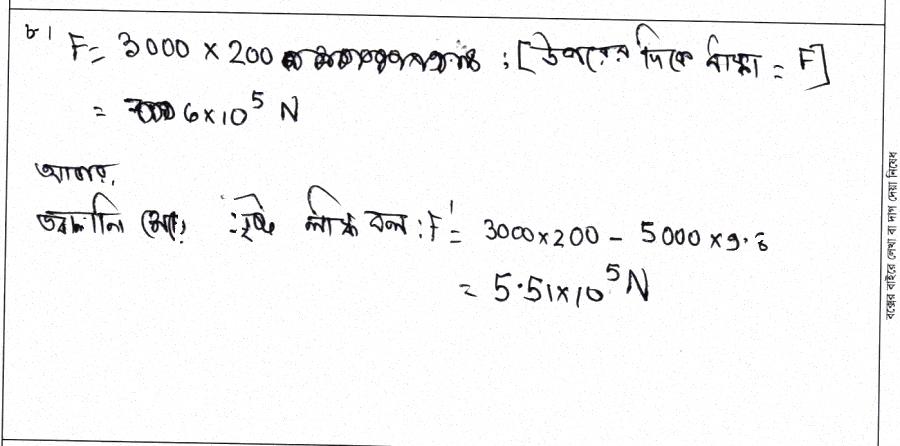 ৮। F = 3000 × 200 ; [উপরের দিকে ধাক্কা = F]
= 6×10⁵ N
আবার,
জ্বালানি শেষে লব্ধি বল : F' = 3000×200 − 5000×9.8
= 5.51×10⁵ N
বক্সের বাইরে লেখা বা দাগ দেয়া নিষেধ